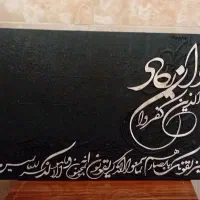 وان یکاد
الذین کفروا
لیزلقونک بابصارهم لما سمعوا الذکر و یقولون انه لمجنون و ما هو الا ذکر للعالمین